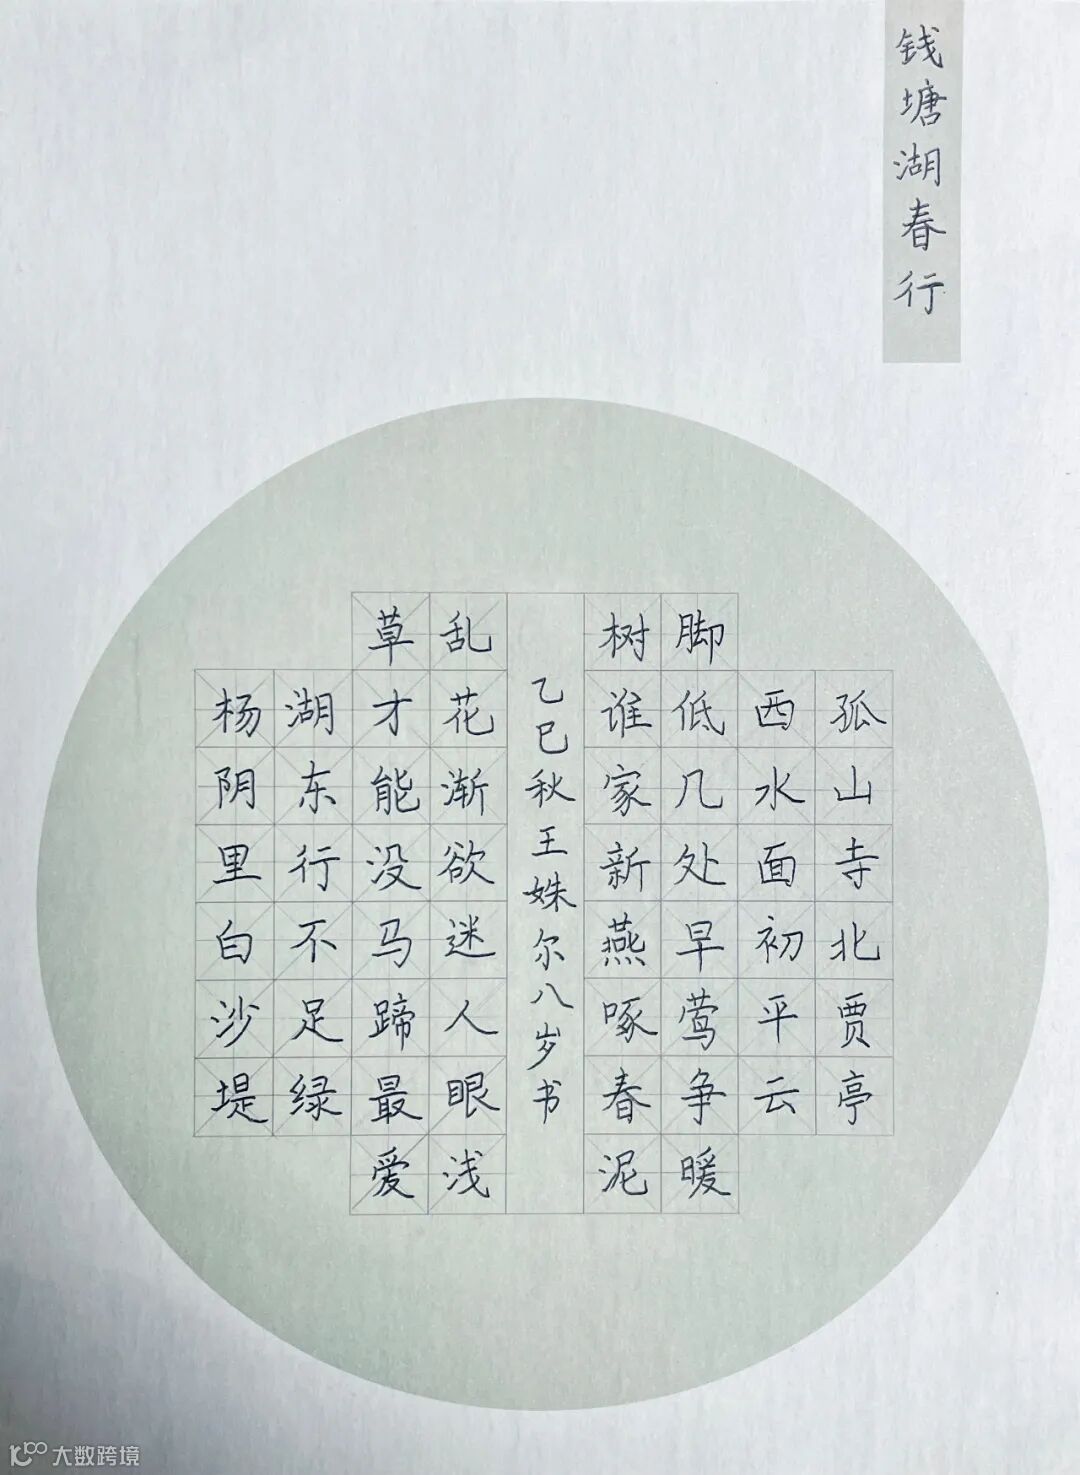 钱塘湖春行
孤山寺北贾亭
西水面初平云
脚低几处早莺争暖
树谁家新燕啄春泥
乙巳秋王姝尔八岁书
乱花渐欲迷人眼浅
草才能没马蹄最爱
湖东行不足绿
杨阴里白沙堤
大数跨境